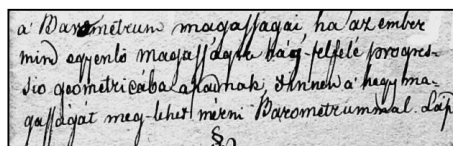 a' Barometrum magasságai, ha az ember
mind egyenlő magasságra hág-felfelé progres-
sio geometricába apadnak, s innen a' hegy ma-
gasságát meg-lehet mérni Barometrummal. Láp
§